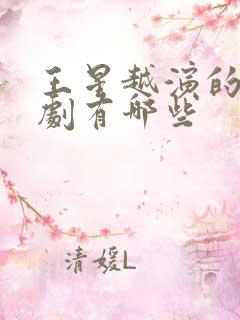 王星越演的
劇有哪些
清媛L